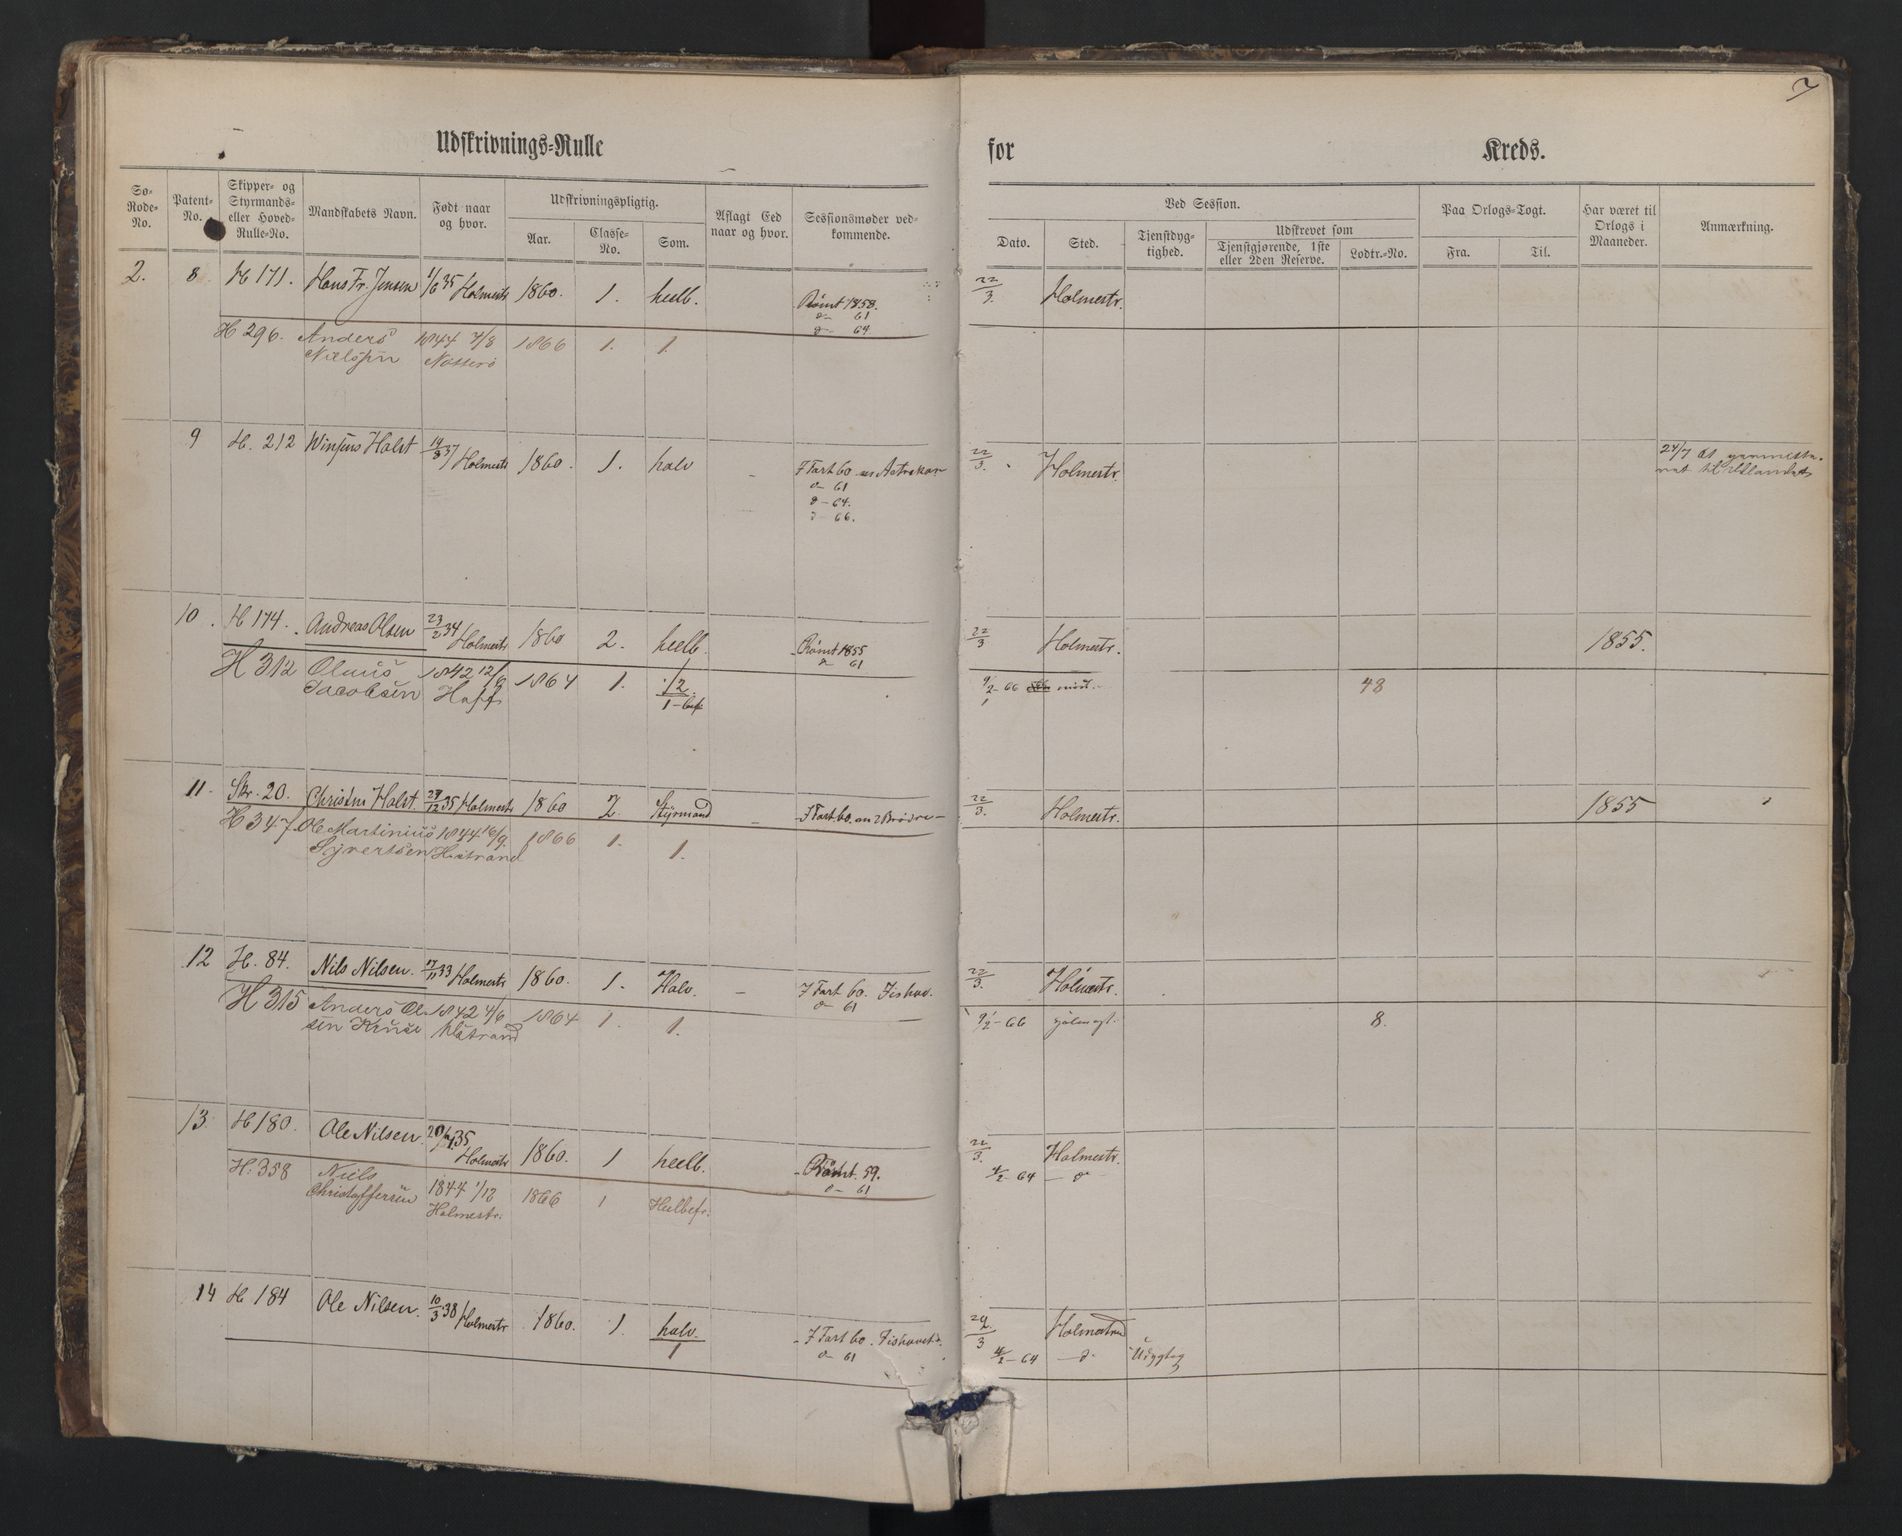 7
Udskrivnings-Rulle for Kreds.
So-Rode-No.
Patent-No.
Skipper- og Styrmands- eller Hoved-Rulle-No.
Mandskabets Navn.
Født naar og hvor.
Udskrivningspligtig.
Aar.
Classe-No.
Som.
Aflagt Eed naar og hvor.
Sessionsmøder vedkommende.
Ved Session.
Dato.
Sted.
Tjenstdygtighed.
Udskrevet som
Tjenstgjørende, 1ste eller 2den Reserve.
Lodtr.-No.
Paa Orlogs-Togt.
Fra.
Til.
Har været til Orlogs i Maaneder.
Anmærkning.
2. 8 H 171. Hans Fr. Jensen 1/6 35 Holmestr 1860. 1. heelb. Rømt 1858. 22/3. Holmestr.
d- 61
d- 64
H 296. Anders 1844 7/8 1866 1. 1.
Nielsen Nøtterø
9 H. 212 Winsens Halst 14/8 37 Holmestr 1860. 1. halv - I Fart 60 22/3. Holmestr.
d- 61
d- 64.
d- 66.
24/7 til Udlandet
10. H 174. Andreas Olsen 23/2 34 Holmestr 1860 2. heelb. Rømt 1855 22/3 Holmestr. 1855.
d- 61
H 312 Olaus 1842 12/6 1864 1. 1/2 9/2-66 48
Jacobsen 1-bef
11. Skr. 20. Christen Halst. 29/12 35 Holmestr 1860 2. Styrmand - I Fart 60. 22/3. Holmestr. 1855
H 347. Ole Martinius 1844 16/9. 1866 1. 1.
Syvertsen H.strand
12 H. 84. Nils Nilsen. 17/11 33 Holmestr 1860. 1. Halv. - I Fart 60. 22/3. Holmestr.
d- 61
H 315 Anders Ol- 1842 4/6 1864 1. 1. 9/2-66 8.
sen Kruse H.strand
13. H 180. Ole Nilsen. 20/4 35 Holmestr 1860. 1 heelb. - Rømt. 59. 22/3. Holmestr.
d- 61 4/2-64 - d
H. 358 Niels 1844 1/12 1866 1 Heelbefr.
Christoffersen Holmestr.
14 H 184 Ole Nilsen. 10/3 38 Holmestr 1860. 1. halv. - I Fart 60. 22/3 Holmestrand
1 d- 61 4/2-64 -d- Udygtig